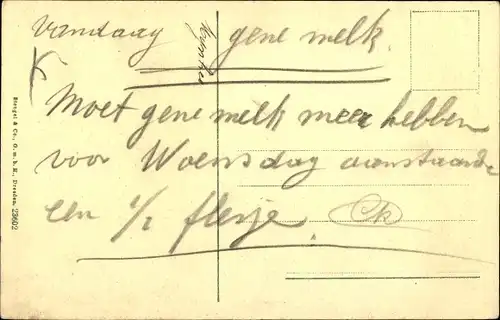 Vandaag gene melk.
Moet gene melk meer hebben
voor Woensdag aanstaande
een 1/2 flesje.
Stengel & Co., G. m. b. H., Dresden. 23602